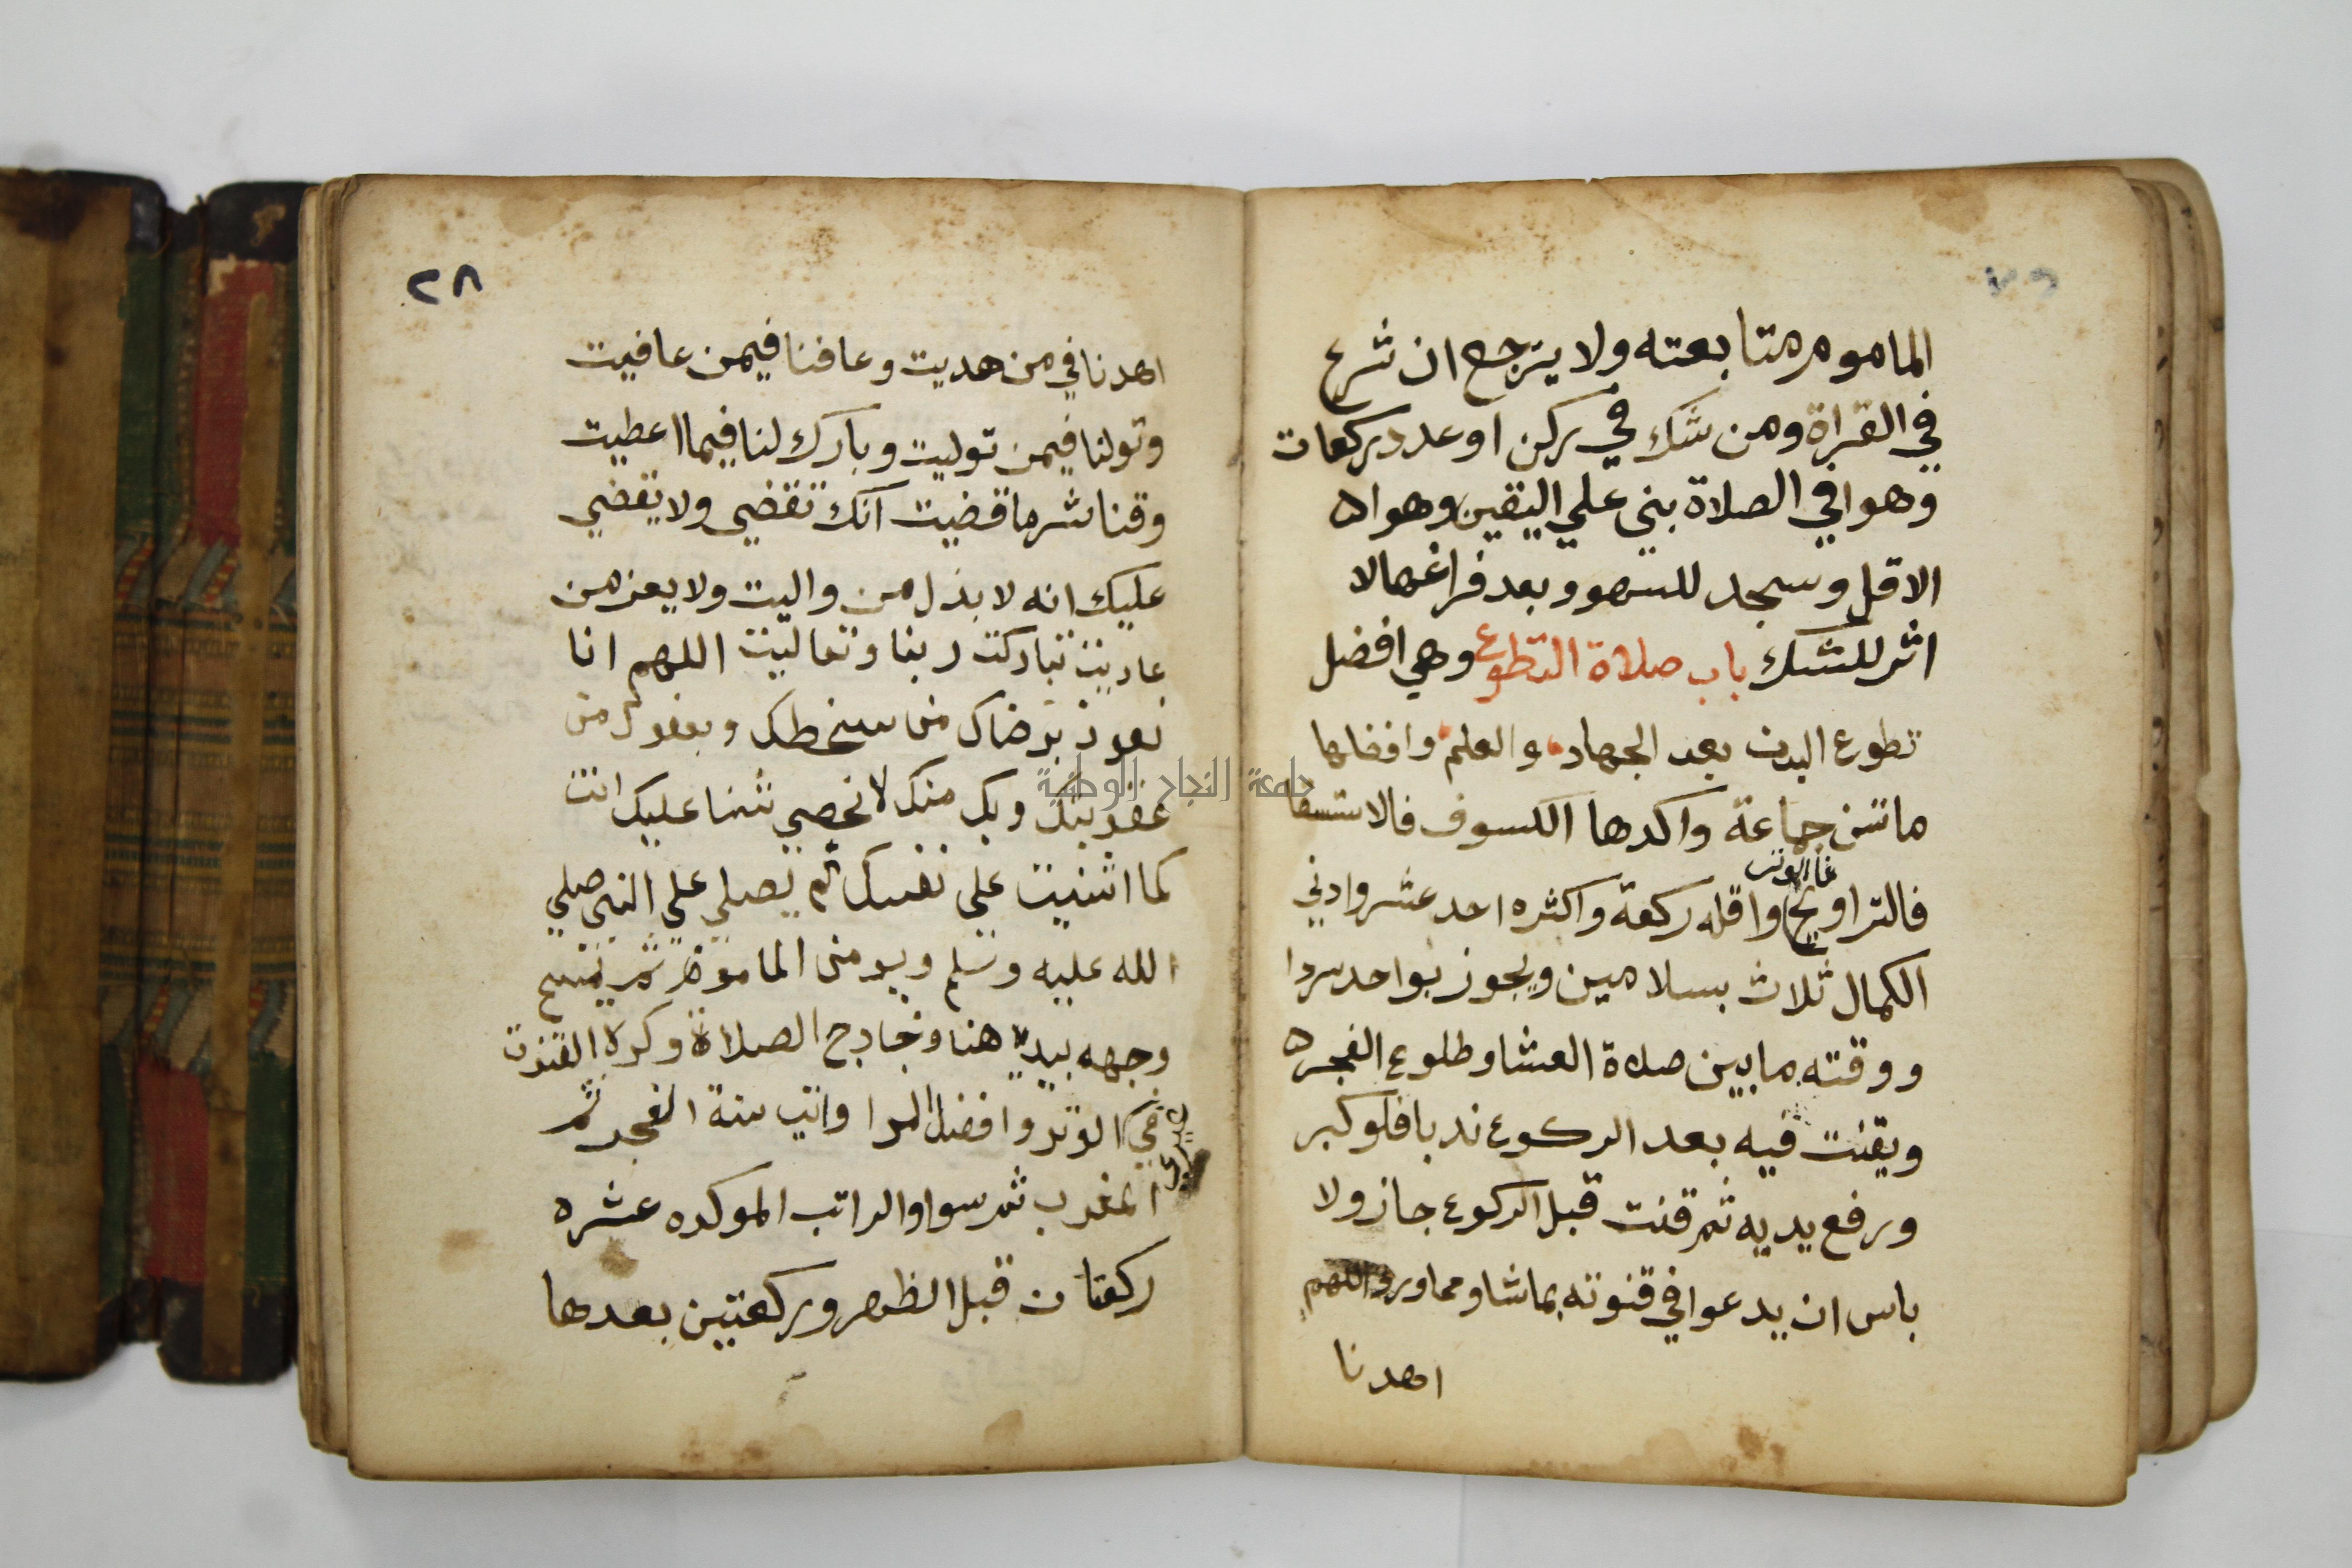 الماموم متابعته ولا يرجع ان شرع
في القراة ومن شك في ركن او عدد ركعات
وهوا في الصلاة بنى علي اليقين وهوا ه
الاقل وسجد للسهو وبعد فراغها لا
اثر للشك باب صلاة التطوع وهي افضل
تطوع البدن بعد الجهاد والعلم وافضلها
ما تسن جماعة واكدها الكسوف فالاستسقا
فالوتر
فالتراويح واقله ركعة واكثره احد عشر وادني
الكمال ثلاث بسلامين ويجوز بواحد سردا
ووقته ما بين صلاة العشا وطلوع الفجر ه
ويقنت فيه بعد الركوع ندبا فلو كبر
ورفع يديه ثم قنت قبل الركوع جاز ولا
باس ان يدعوا في قنوته بما شا ومما ورد اللهم
اهدنا
٢٨
اهدنا في من هديت وعافنا فيمن عافيت
وتولنا فيمن توليت وبارك لنا فيما اعطيت
وقنا شر ما قضيت انك تقضي ولا يقضي
عليك انه لا يذل من واليت ولا يعز من
عاديت تباركت ربنا وتعاليت اللهم انا
نعوذ برضاك من سخطك وبعفوك من
عقوبتك وبك منك لا نحصي ثنا عليك انت
كما اثنيت علي نفسك ثم يصلي علي النبي صلي
الله عليه وسلم ويومن الماموم ثم يمسح
وجهه بيديه هنا وخارج الصلاة وكره القنوت
في غير الوتر وافضل الرواتب سنة الفجر ثم
المغرب ثم سوا والراتب الموكده عشره
ركعتان قبل الظهر وركعتين بعدها
جامعة النجاح الوطنية